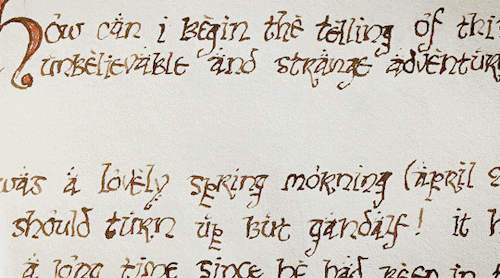 How can i begin the telling of this
unbelievable and strange adventur
was a lovely spring morning (april 2
should turn up but gandalf! it h
a long time since he had been in